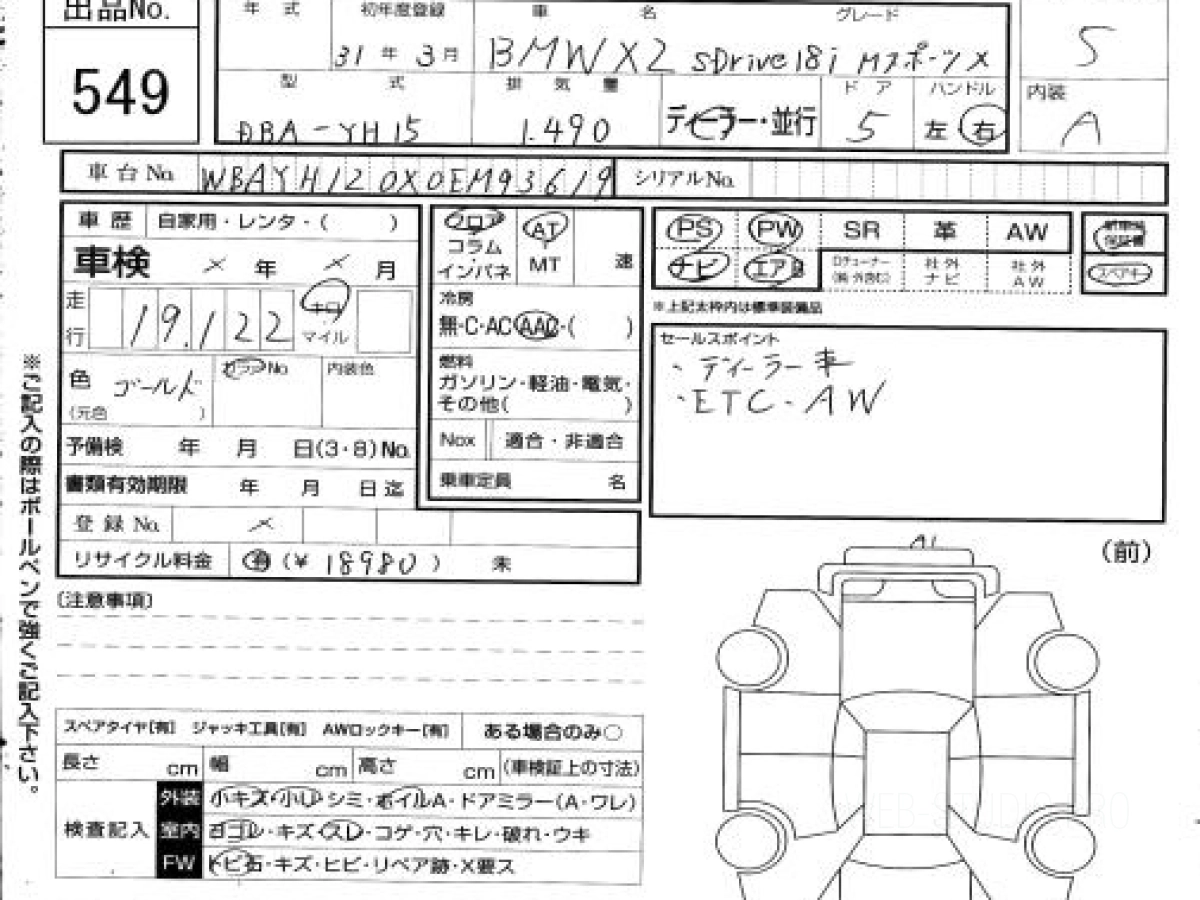 出品No.
549
年 式 初年度登録 車 名 グレード
31年 3月 BMW X2 SDrive18i Mスポーツ X
S
型 式 排 気 量 ドア ハンドル 内装
DBA-YH15 1.490 ディーラー・並行 5 左 右 A
車台No. WBAYH120X0EM93619 シリアルNo.
車 歴 自家用・レンタ・( )
車検 × 年 × 月
走行 19.122 キロ マイル
色 ゴールド カラーNo 内装色
(元色 )
予備検 年 月 日(3・8)No.
書類有効期限 年 月 日迄
登録No. ×
リサイクル料金 (¥ 18980 ) 未
フロア
コラム
インパネ
AT
MT
速
冷房
無・C・AC・AAC・( )
燃料
ガソリン・軽油・電気・
その他( )
Nox 適合・非適合
乗車定員 名
PS PW SR 革 AW
ナビ エアB Dチューナー 社外ナビ 社外AW
スペアキー
※上記太枠内は標準装備品
セールスポイント
・ディーラー車
・ETC・AW
※ご記入の際はボールペンで強くご記入下さい。
(注意事項)
スペアタイヤ[有] ジャッキ工具[有] AWロックキー[有] ある場合のみ○
長さ cm 幅 cm 高さ cm (車検証上の寸法)
検査記入
外装 小キズ・小U・シミ・ホイルA・ドアミラー(A・ワレ)
室内 ヨゴレ・キズ・スレ・コゲ・穴・キレ・破れ・ウキ
FW トビ石・キズ・ヒビ・リペア跡・X要ス
A1
(前)